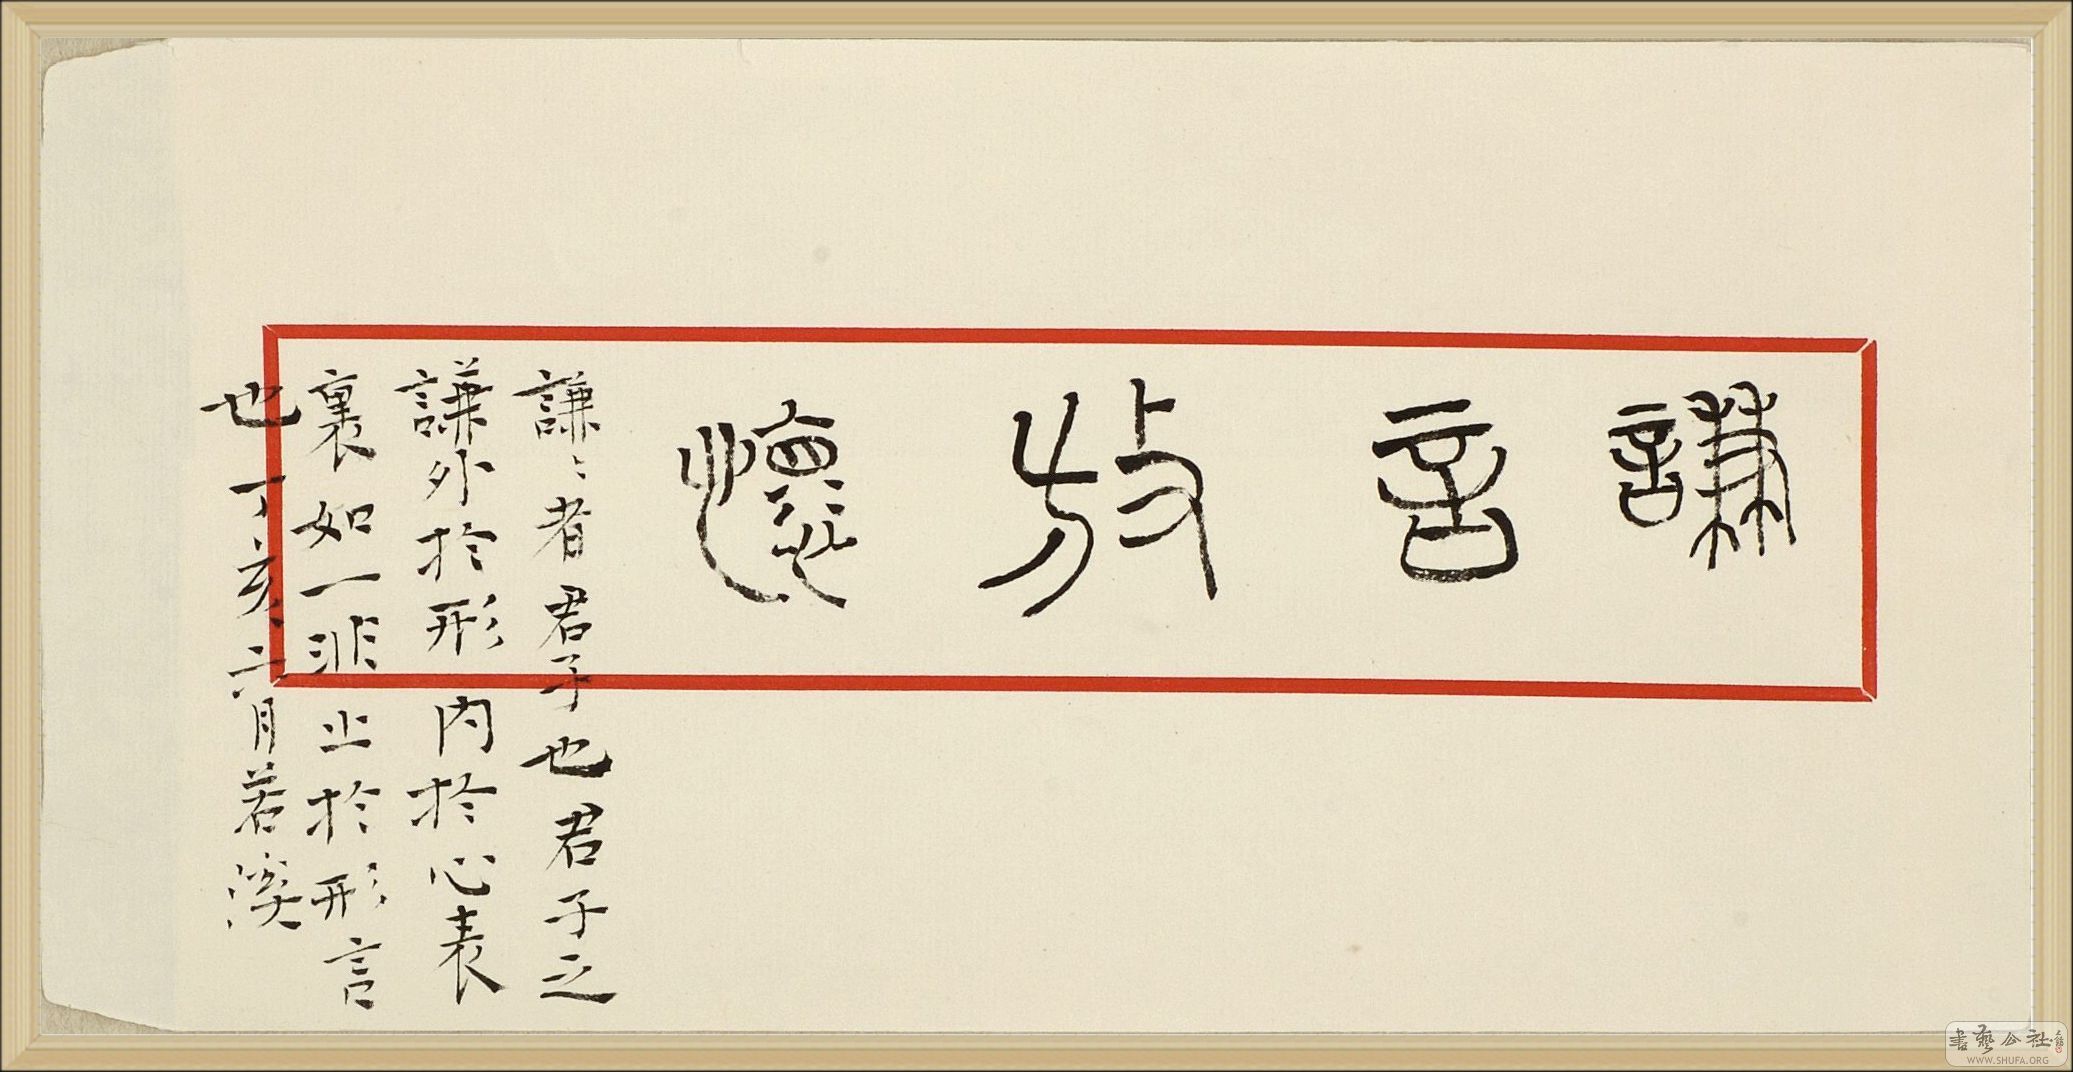 謙言放懷
謙〻者君子也君子之
謙外於形內於心表
裏如一非止於形言
也丁亥六月若溪
書藝公社
WWW.SHUFA.ORG